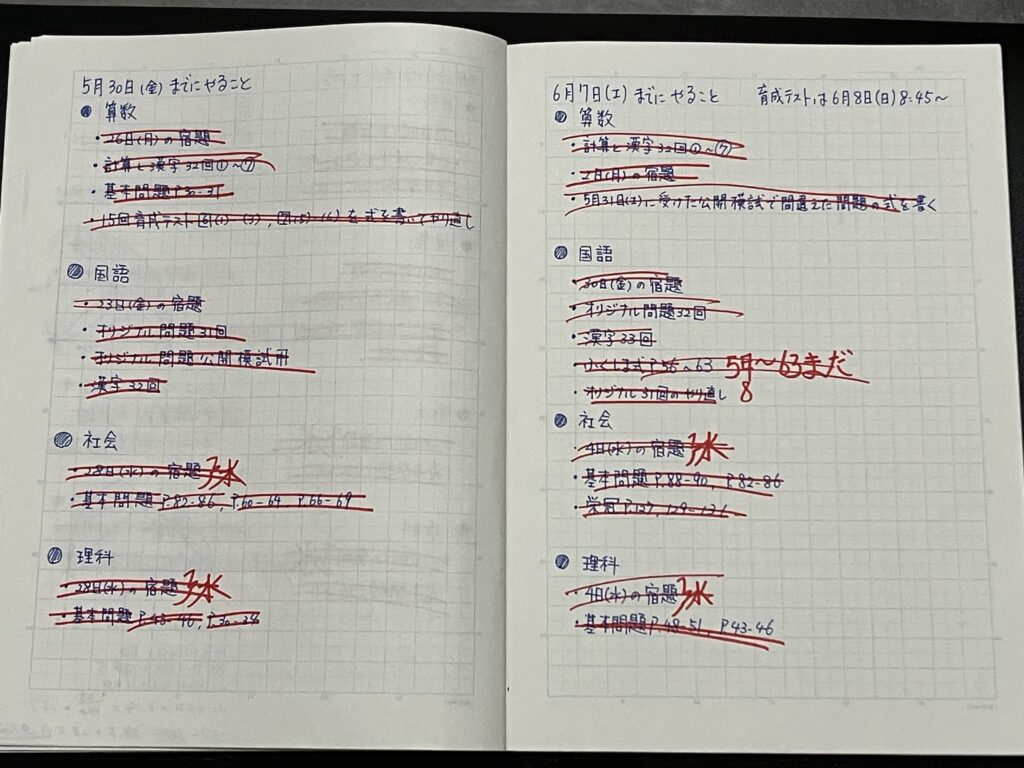 5月30日(金)までにやること
算数
・26日(月)の宿題
・計算と漢字32回①~⑦
・基本問題P.30-31
・15回育成テスト を式を書いてやり直し
国語
・23日(金)の宿題
・オリジナル問題31回
・オリジナル問題公開模試用
・漢字32回
社会
・28日(水)の宿題 水
・基本問題 P.82-86, P.60-64 P.66-69
理科
・28日(水)の宿題 水
・基本問題 P.43-46, P.30-
6月7日(土)までにやること 育成テストは6月8日(日)8:45~
算数
・計算と漢字32回①~⑦
・2日(月)の宿題
・5月31日(土)に受けた公開模試で間違えた問題の式を書く
国語
・30日(金)の宿題
・オリジナル問題32回
・漢字33回
・ふくしま式P.56~63 ~63まだ
・オリジナル31回のやり直し 8
社会
・4日(水)の宿題 水
・基本問題 P.88-90, P.82-86
・栄冠 P.127, 129-131
理科
・4日(水)の宿題 水
・基本問題P.48-51, P.43-46